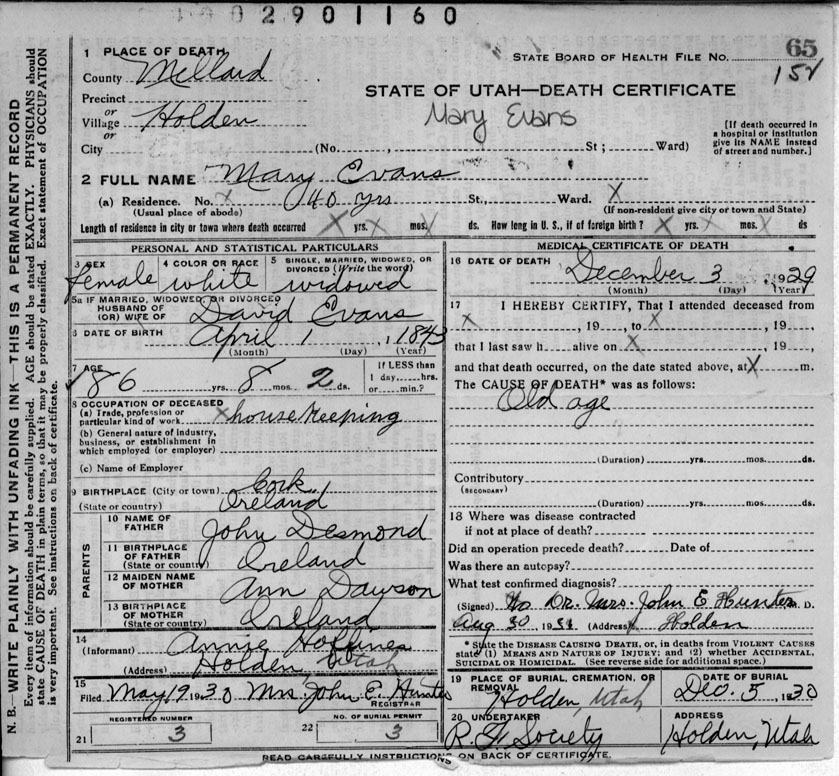 02901160
1 PLACE OF DEATH
STATE BOARD OF HEALTH FILE NO. 65
County Millard
152
STATE OF UTAH—DEATH CERTIFICATE
Precinct
or
Village Holden
or
Mary Evans
[If death occurred in
a hospital or institution
give its NAME instead
of street and number.]
City (No. , St ; Ward)
2 FULL NAME Mary Evans
(a) Residence. No. X 40 yrs St., Ward. X
(Usual place of abode) (If non-resident give city or town and State)
Length of residence in city or town where death occurred X yrs. X mos. ds. How long in U. S., if of foreign birth? X yrs. X mos. X ds.
PERSONAL AND STATISTICAL PARTICULARS
3 SEX female
4 COLOR OR RACE white
5 SINGLE, MARRIED, WIDOWED, OR
DIVORCED (Write the word)
widowed
5a IF MARRIED, WIDOWED, OR DIVORCED
HUSBAND OF
(OR) WIFE OF David Evans
6 DATE OF BIRTH April 1, 1843
(Month) (Day) (Year)
7 AGE 86 yrs. 8 mos. 2 ds.
If LESS than
1 day, hrs.
or min.?
8 OCCUPATION OF DECEASED
(a) Trade, profession or
particular kind of work X housekeeping
(b) General nature of industry,
business, or establishment in
which employed (or employer)
(c) Name of Employer
9 BIRTHPLACE (City or town) Cork
(State or country) Ireland
PARENTS
10 NAME OF
FATHER John Desmond
11 BIRTHPLACE
OF FATHER
(State or country) Ireland
12 MAIDEN NAME
OF MOTHER Ann Dawson
13 BIRTHPLACE
OF MOTHER
(State or country) Ireland
14
(Informant) Annie
(Address) Holden Utah
15
Filed May 19 1930 Mrs. John E. Hunter
REGISTRAR
REGISTERED NUMBER
21 3
NO. OF BURIAL PERMIT
22 3
MEDICAL CERTIFICATE OF DEATH
16 DATE OF DEATH December 3 1929
(Month) (Day) (Year)
17 I HEREBY CERTIFY, That I attended deceased from
X , 19 , to X , 19
that I last saw h alive on X , 19
and that death occurred, on the date stated above, at X m.
The CAUSE OF DEATH* was as follows:
Old age
(Duration) yrs. mos. ds.
Contributory
(SECONDARY)
(Duration) yrs. mos. ds.
18 Where was disease contracted
if not at place of death?
Did an operation precede death? Date of
Was there an autopsy?
What test confirmed diagnosis?
(Signed) No Dr. Mrs. John E Hunter M. D.
Aug 30 (Address) Holden
* State the DISEASE CAUSING DEATH, or, in deaths from VIOLENT CAUSES
state (1) MEANS AND NATURE OF INJURY; and (2) whether ACCIDENTAL
SUICIDAL OR HOMICIDAL. (See reverse side for additional space.)
19 PLACE OF BURIAL, CREMATION, OR
REMOVAL
Holden, Utah
DATE OF BURIAL
Dec. 5, 1930
20 UNDERTAKER
R. F. Society
ADDRESS
Holden, Utah
READ CAREFULLY INSTRUCTIONS ON BACK OF CERTIFICATE.
N. B.—WRITE PLAINLY WITH UNFADING INK—THIS IS A PERMANENT RECORD
Every item of information should be carefully supplied. AGE should be stated EXACTLY. PHYSICIANS should
state CAUSE OF DEATH in plain terms, so that it may be properly classified. Exact statement of OCCUPATION
is very important. See instructions on back of certificate.